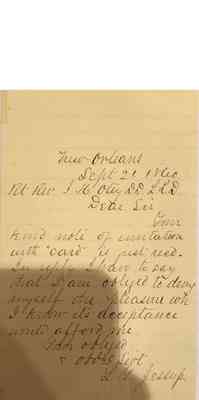 New Orleans
Sept 21 1860
Rt Rev J H Otey DD LLD
Dear Sir
Your
kind note of invitation
with "card" is just recd.
In reply I have to say
that I am obliged to deny
myself the pleasure wh
I know its acceptance
would afford me.
Yrs obliged
& obdt Svt.
Jessup.